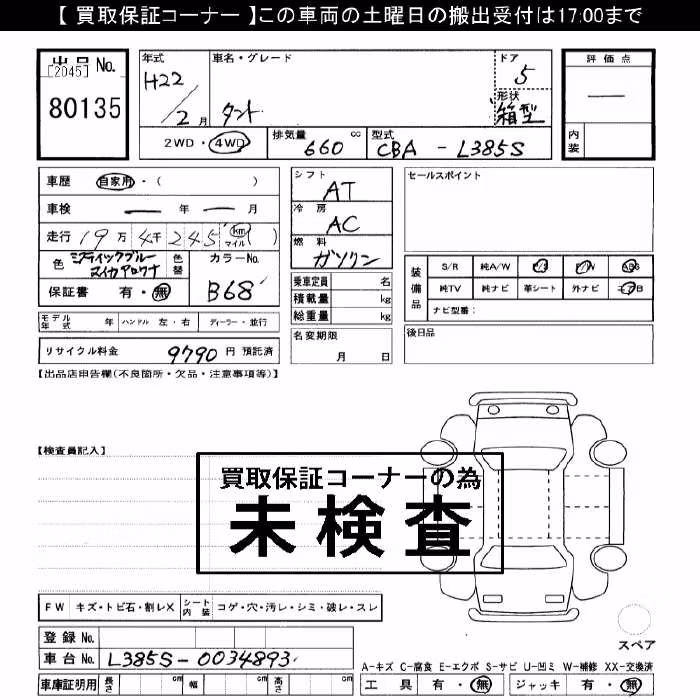 【 買取保証コーナー 】この車両の土曜日の搬出受付は17:00まで
出品 No.
[2045]
80135
年式
H22/2月
車名・グレード
タント
ドア
5
形状
箱型
評価点
—
内装
2WD・4WD
排気量 660 cc
型式 CBA - L385S
車歴 自家用・( )
車検 — 年 — 月
走行 19万4千245 km マイル ( )
色
色替
カラーNo.
B68
保証書 有・無
モデル年式 年 ハンドル 左・右 ディーラー・並行
リサイクル料金 9790 円 預託済
シフト
AT
冷房
AC
燃料
ガソリン
乗車定員 名
積載量 kg
総重量 kg
名変期限
月 日
セールスポイント
装備品
S/R 純A/W P/S P/W ABS
純TV 純ナビ 革シート 外ナビ エアB
ナビ型番:
後日品
【出品店申告欄(不良箇所・欠品・注意事項等)】
【検査員記入】
買取保証コーナーの為
未検査
FW キズ・トビ石・割レX シート内装 コゲ・穴・汚レ・シミ・破レ・スレ
登録 No.
車台 No. L385S-0034893
車庫証明用 長さ cm 幅 cm 高さ cm
スペア
A-キズ C-腐食 E-エクボ S-サビ U-凹ミ W-補修 XX-交換済
工具 有・無 ジャッキ 有・無